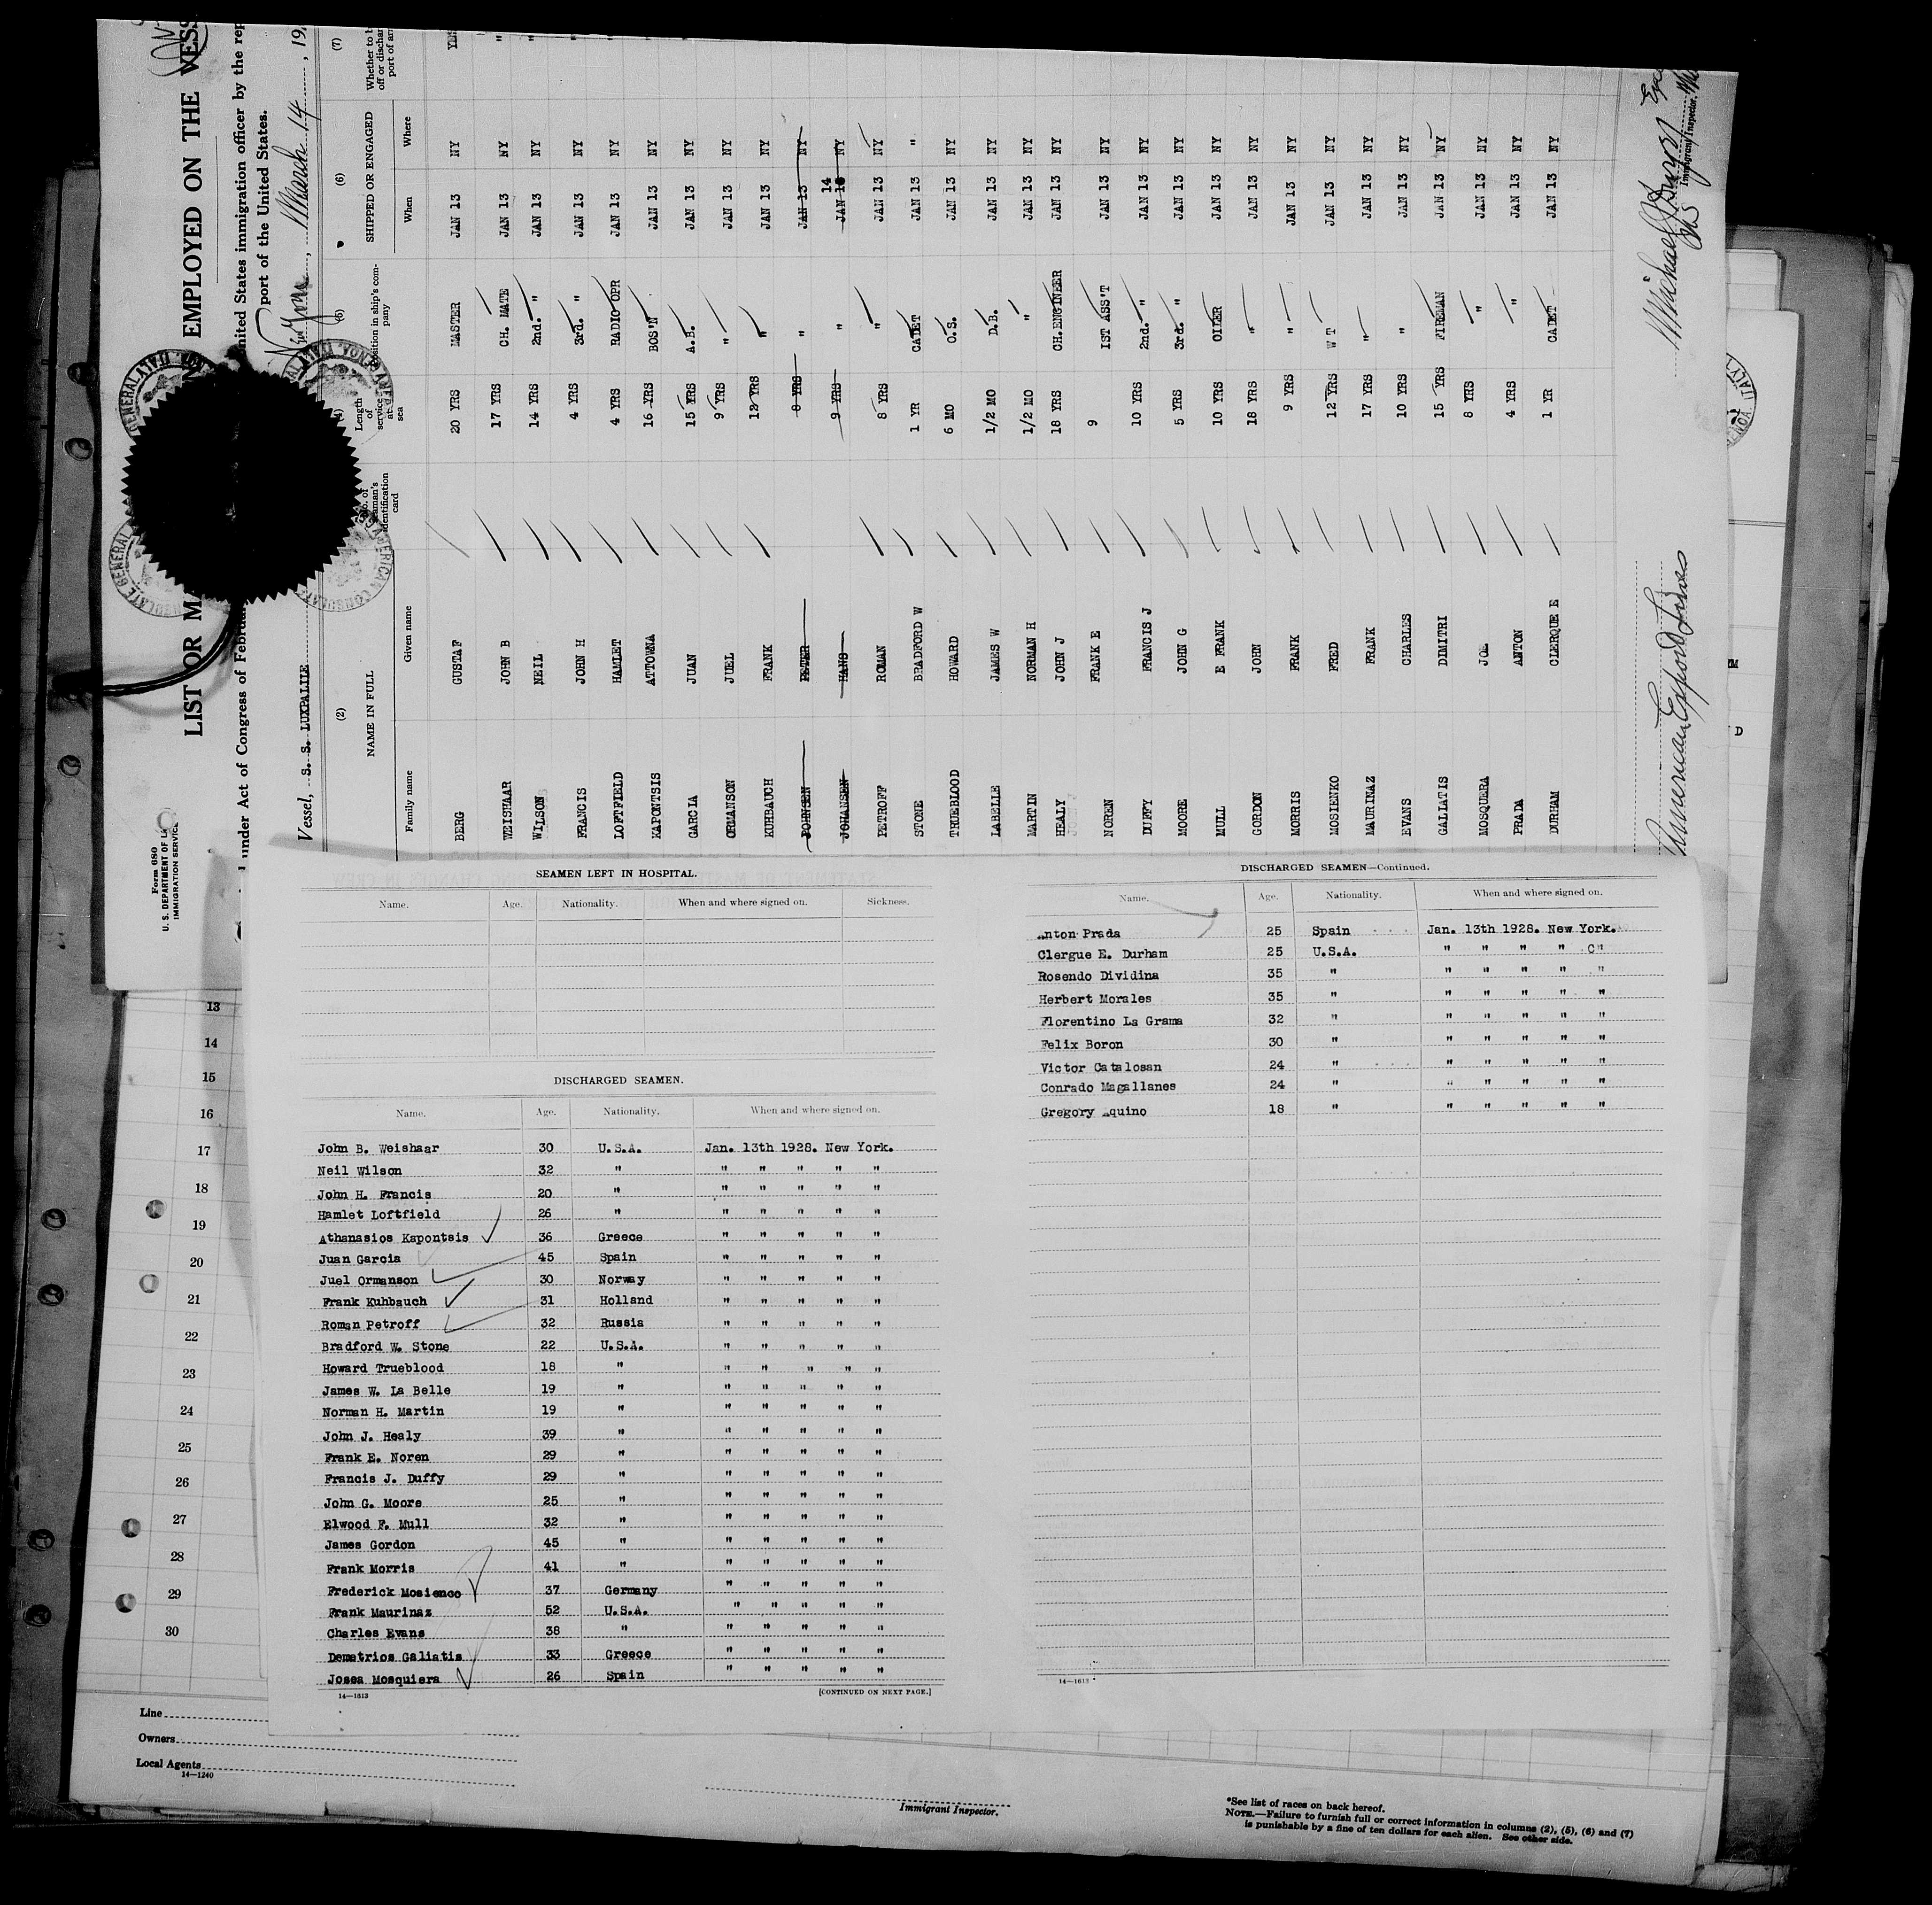 Form 680
U. S. DEPARTMENT OF
IMMIGRATION SERVICE
LIST OR EMPLOYED ON THE
under Act of Congress of United States immigration officer by the
port of the United States.
Vessel, S. S. LUXPALILE
New York, March 14, 19
(2) (5) (6) (7)
NAME IN FULL
Family name Given name
No. of seaman's identification card
Length of service at sea
Position in ship's company
SHIPPED OR ENGAGED
When Where
BERG GUSTAF 20 YRS MASTER JAN 13 NY YES
WEISHAAR JOHN B 17 YRS CH. MATE JAN 13 NY "
WILSON NEIL 14 YRS 2nd. " JAN 13 NY "
FRANCIS JOHN H 4 YRS 3rd. " JAN 13 NY "
LOFTFIELD HAMLET 4 YRS RADIO OPR JAN 13 NY "
KAPONTSIS ATTOWNA 16 YRS BOS'N JAN 13 NY
GARCIA JUAN 15 YRS A.B. JAN 13 NY
ORMANSON JUEL 9 YRS " JAN 13 NY
KUHBAUCH FRANK 13 YRS " JAN 13 NY
PETER 8 YRS " JAN 13 NY
JOHANSEN HANS 9 YRS " JAN 14 NY
PETROFF ROMAN 8 YRS " JAN 13 NY
STONE BRADFORD W 1 YR CADET JAN 13 "
TRUEBLOOD HOWARD 6 MO O.S. JAN 13 NY
LABELLE JAMES W 1/2 MO D.B. JAN 13 NY
MARTIN NORMAN H 1/2 MO " JAN 13 NY
HEALY JOHN J 18 YRS CH.ENGINEER JAN 13 NY
NOREN FRANK E 9 IST ASS'T JAN 13 NY
DUFFY FRANCIS J 10 YRS 2nd. " JAN 13 NY
MOORE JOHN G 5 YRS 3rd. " JAN 13 NY
MULL E FRANK 10 YRS OILER JAN 13 NY
GORDON JOHN 18 YRS " JAN 13 NY
MORRIS FRANK 9 YRS " JAN 13 NY
MOSIENKO FRED 12 YRS W T JAN 13 NY
MAURINAZ FRANK 17 YRS " JAN 13 NY
EVANS CHARLES 10 YRS " JAN 13 NY
GALATIS DIMITRI 15 YRS FIREMAN JAN 13 NY
MOSQUERA JOE 8 YRS " JAN 13 NY
PRADA ANTON 4 YRS " JAN 13 NY
DURHAM CLERQUE E 1 YR CADET JAN 13 NY
American Export Lines
Immigrant Inspector.
SEAMEN LEFT IN HOSPITAL.
Name. Age. Nationality. When and where signed on. Sickness.
DISCHARGED SEAMEN.
Name. Age. Nationality. When and where signed on.
John B. Weishaar 30 U.S.A. Jan. 13th 1928. New York.
Neil Wilson 32 " " " " " "
John H. Francis 20 " " " " " "
Hamlet Loftfield 26 " " " " " "
Athanasios Kapontsis 36 Greece " " " " "
Juan Garcia 45 Spain " " " " "
Juel Ormanson 30 Norway " " " " "
Frank Kuhbauch 31 Holland " " " " "
Roman Petroff 32 Russia " " " " "
Bradford W. Stone 22 U.S.A. " " " " "
Howard Trueblood 18 " " " " " "
James W. La Belle 19 " " " " " "
Norman H. Martin 19 " " " " " "
John J. Healy 39 " " " " " "
Frank E. Noren 29 " " " " " "
Francis J. Duffy 29 " " " " " "
John G. Moore 25 " " " " " "
Elwood F. Mull 32 " " " " " "
James Gordon 45 " " " " " "
Frank Morris 41 " " " " " "
Frederick Mosienco 37 Germany " " " " "
Frank Maurinaz 52 U.S.A. " " " " "
Charles Evans 38 " " " " " "
Demetrios Galiatis 33 Greece " " " " "
Josea Mosquiera 26 Spain " " " " "
14—1613 [CONTINUED ON NEXT PAGE.]
DISCHARGED SEAMEN—Continued.
Name. Age. Nationality. When and where signed on.
Anton Prada 25 Spain Jan. 13th 1928. New York.
Clergue E. Durham 25 U.S.A. " " " " "
Rosendo Dividina 35 " " " " " "
Herbert Morales 35 " " " " " "
Florentino La Grama 32 " " " " " "
Felix Boron 30 " " " " " "
Victor Catalosan 24 " " " " " "
Conrado Magallanes 24 " " " " " "
Gregory Aquino 18 " " " " " "
14—1613
13
14
15
16
17
18
19
20
21
22
23
24
25
26
27
28
29
30
Line
Owners
Local Agents
14—1240
Immigrant Inspector.
*See list of races on back hereof.
NOTE.—Failure to furnish full or correct information in columns (2), (5), (6) and (7)
is punishable by a fine of ten dollars for each alien. See other side.